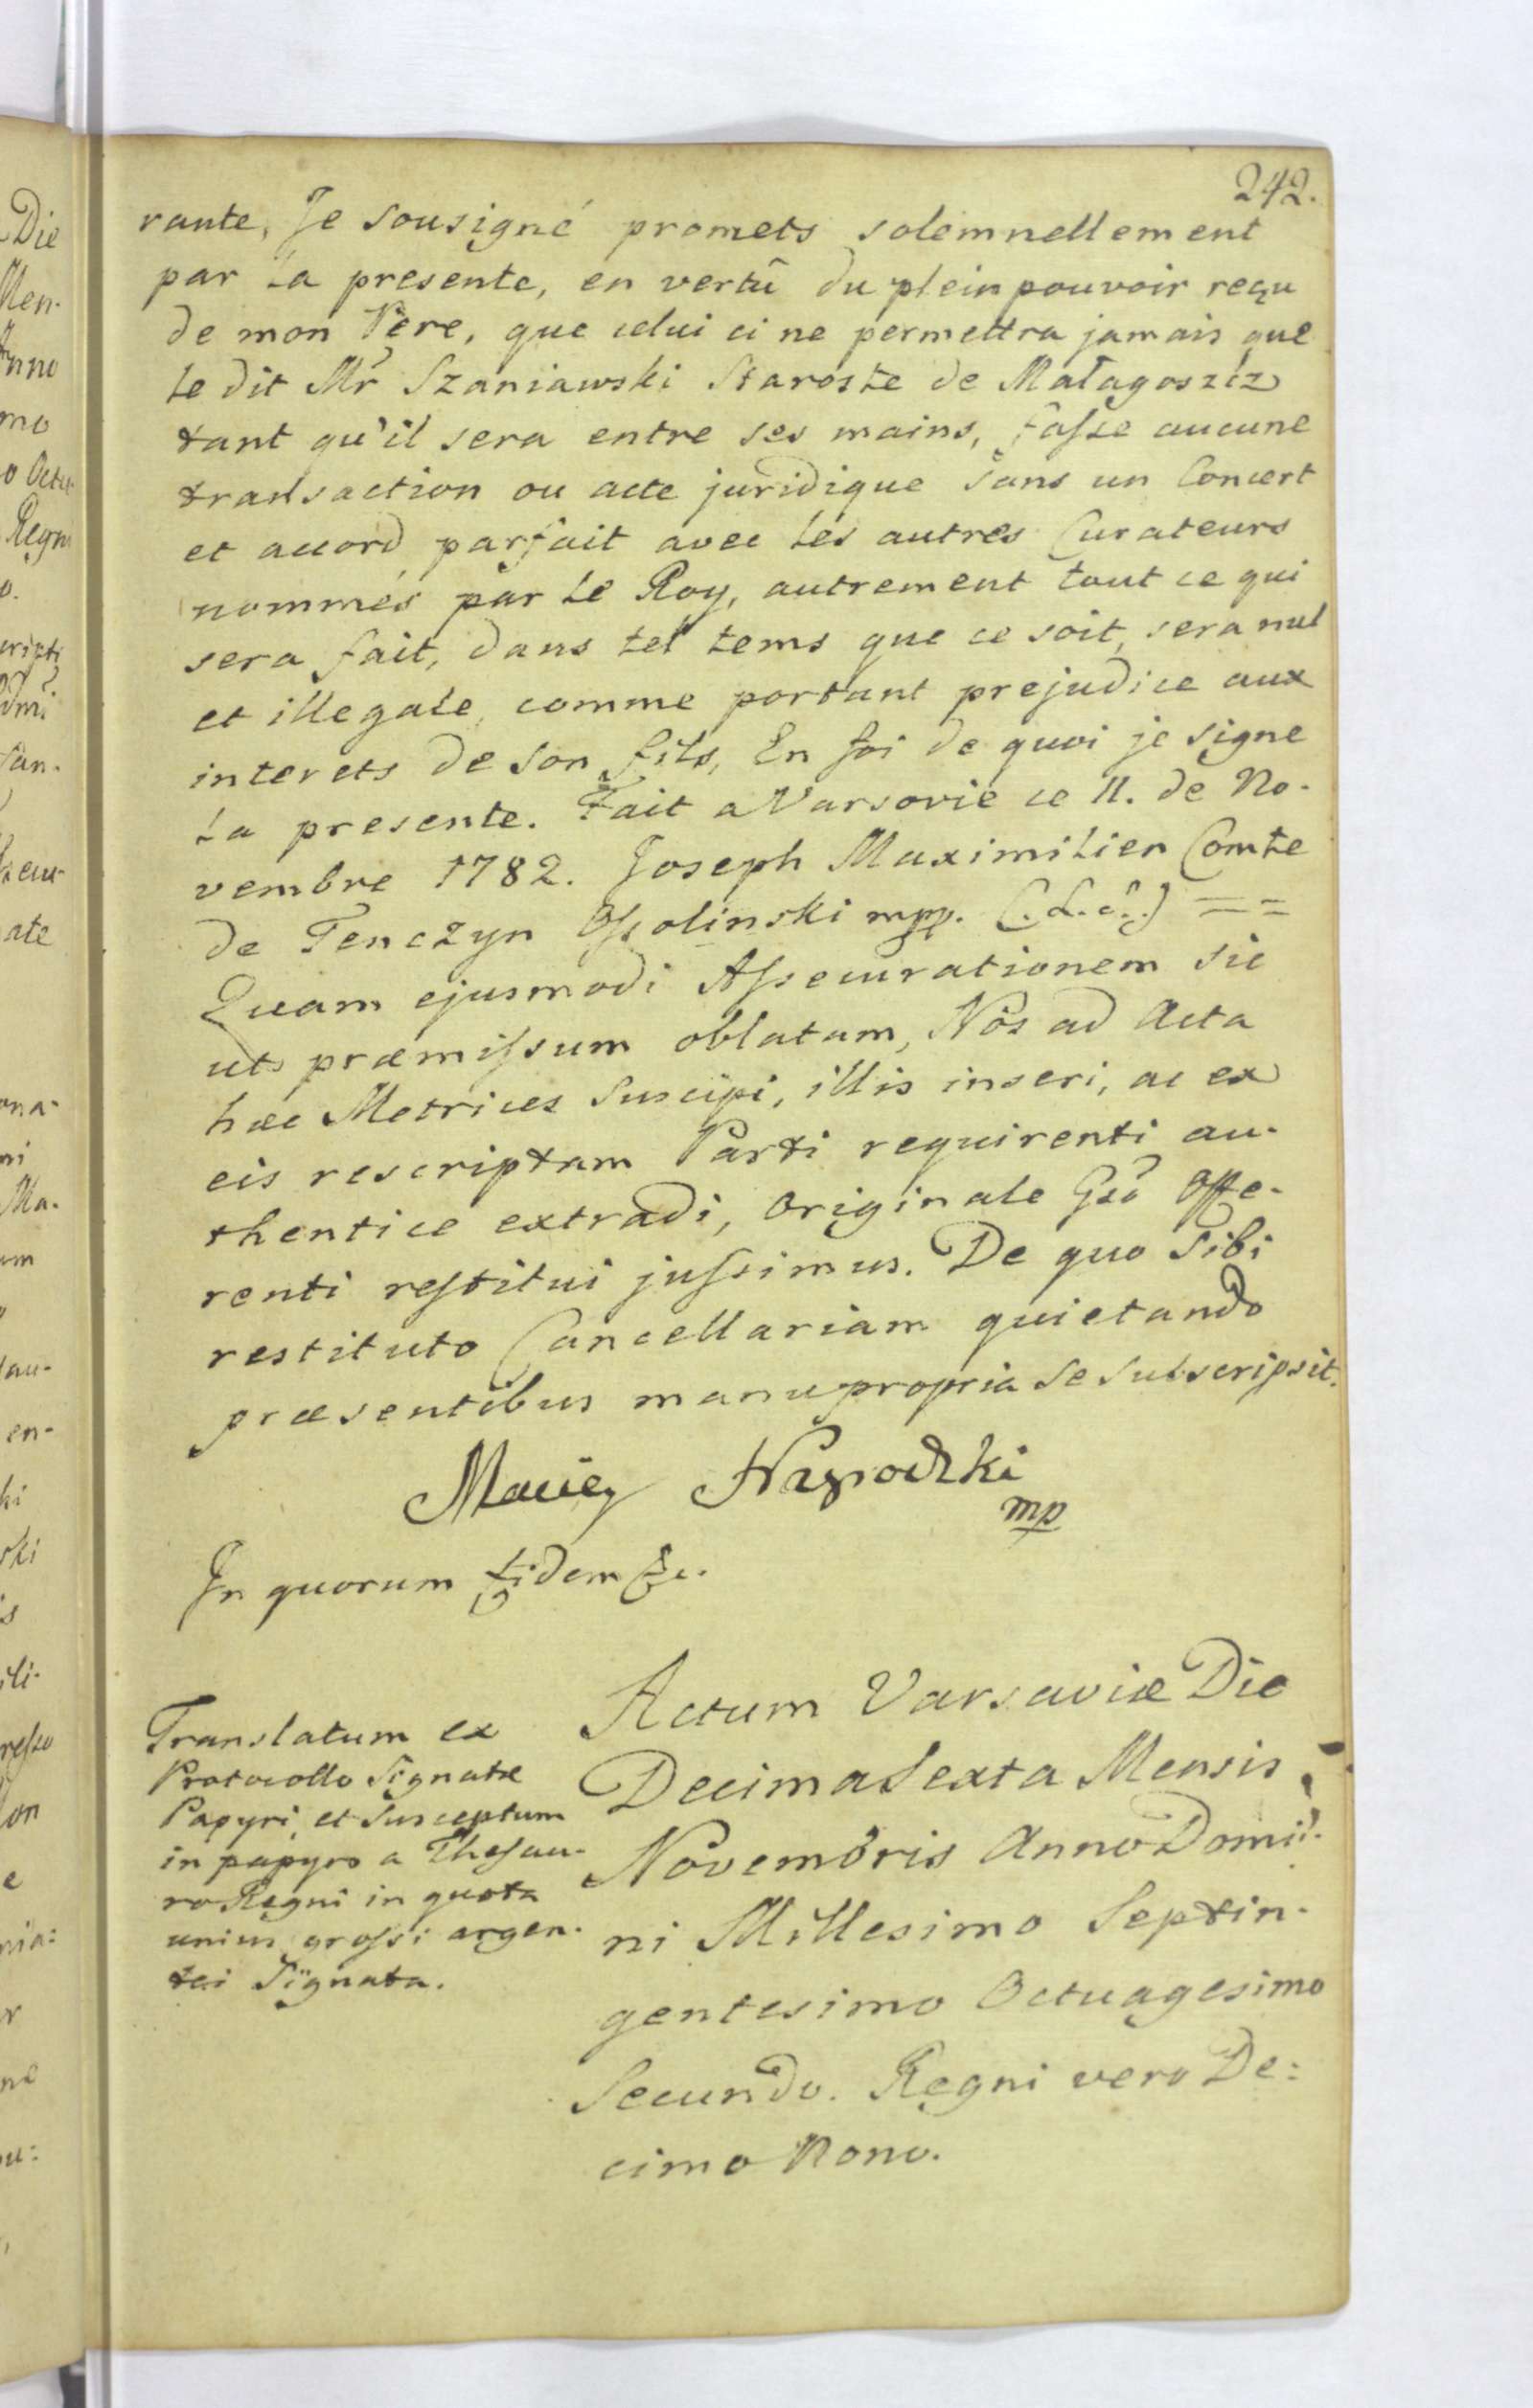 242.
rante, Je sousigné promets solemnellement
par la presente, en vertû du plein pouvoir reçu
de mon Pere, que celui ci ne permettra jamais que
le dit Mr Szaniawski Staroste de Małagoszcz
tant qu'il sera entre ses mains, fasse aucune
transaction ou acte juridique sans un Concert
et accord parfait avec les autres Curateurs
nommés par le Roy, autrement tout ce qui
sera fait, dans tel tems que ce soit, sera nul
et illegale, comme portant prejudice aux
interets de son fils, En foi de quoi je signe
la presente. Fait a Varsovie ce 11. de No-
vembre 1782. Joseph Maximilien Comte
de Tenczyn Ossolinski mpp. (L.S.) = =
Quam ejusmodi Assecurationem sic
uts præmissum oblatam, Nos ad Acta
hæc Metrices Suscipi, illis inseri, ac ex
eis rescriptam Parti requirenti au-
thentice extradi, Originale Gso Offe-
renti restitui jussimus. De quo Sibi
restituto Cancellariam quietando
præsentibus manu propria se subscripsit.
Maciey
mp
In quorum fidem &c.
Translatum ex
Protocollo Signatæ
Papyri, et Susceptum
in papyro a Thesau-
ro Regni in quota
unius grossi argen-
tei Signata.
Actum Varsaviæ Die
Decima Sexta Mensis
Novembris Anno Domi-
ni Millesimo Septin-
gentesimo Octuagesimo
Secundo. Regni vero De:
cimo Nono.
Die
Men-
Anno
mo
o Octu-
Regni
o.
ate
Ma-
en-
ki
ski
on